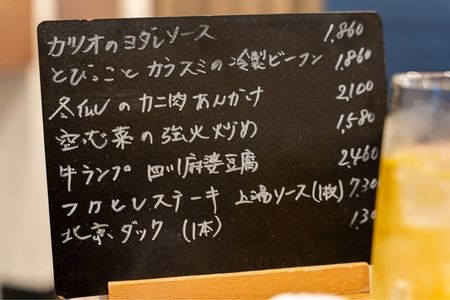 カツオのヨダレソース 1,860
とびっことカラスミの冷製ビーフン 1,860
冬瓜のカニ肉あんかけ 2,100
空心菜の強火炒め 1,580
牛ランプ 四川麻婆豆腐 2,460
フカヒレステーキ 上湯ソース(1枚) 7,30
北京ダック (1本) 1,30